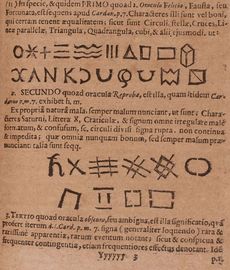 (1) Ipsi specie, & quidem PRIMO quoad 1. Oracula Felicia, Fausta, seu
Fortunata, est sequens apud Cardan. p. 7. Characteres illi sunt vel boni,
qui certam tenent æqualitatem; sicut sunt Circuli, Stellæ, Cruces, Li-
neæ parallelæ, Triangula, Quadrangula, cubi, & alii, ejusmodi, ut:
2. SECUNDO quoad oracula Reproba, est illa, quam itidem Car-
dano p. m. 7. exhibet fi. m.
Ex propria naturâ mala, semper malum nunciant, ut sunt: Chara-
cteres Saturni, Littera X, Craticulæ, & signum omne irregulare malè
formatum, & confusum, sicut Circuli divisi & signa rupta, non continua
& imperfecta; quæ omnia nunquam bonum, sed semper malum præ-
nunciant talia sunt seqq.
3. TERTIO quoad oracula obscura, seu ambigua, est illa significatio, quâ
profert iterum d. Card. p. m. 7. signa (generaliter loquendo) rara &
missure apparentia, rarum eventum notant; sicut & conspicua &
frequenter contingentia, etiam frequentiores eventus portendunt. Id
Yyyyyy 3
p. r.